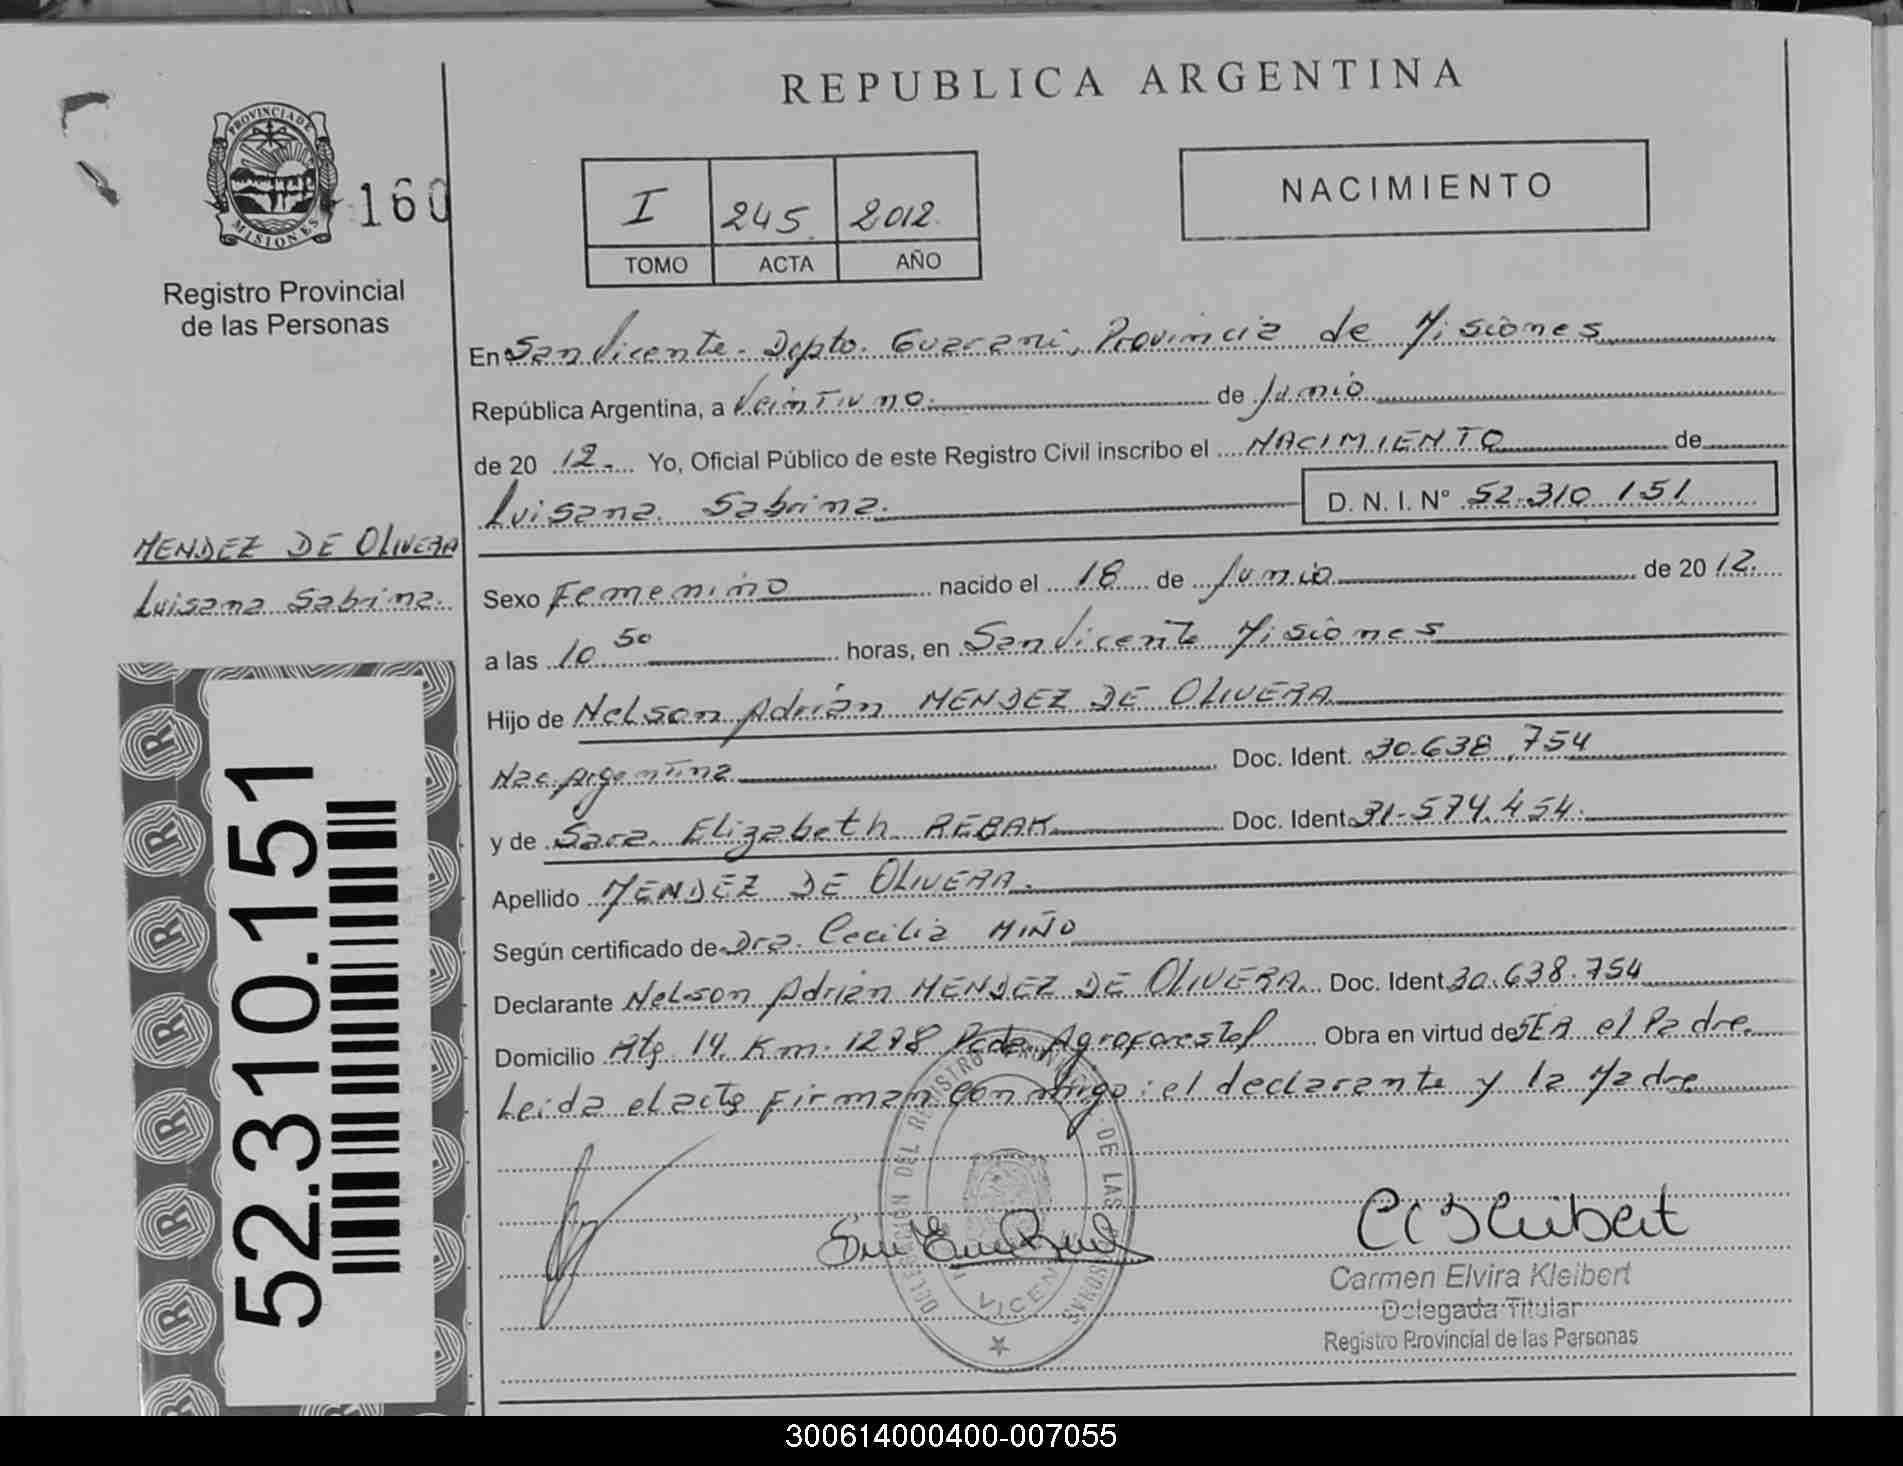 REPUBLICA ARGENTINA
PROVINCIA DE
MISIONES
160
Registro Provincial
de las Personas
I 245 2012
TOMO ACTA AÑO
NACIMIENTO
En San Vicente - Depto. Guarani, Provincia de Misiones
República Argentina, a Veintiuno de Junio
de 20 12. Yo, Oficial Público de este Registro Civil inscribo el NACIMIENTO de
Luisana Sabrina. D. N. I. N° 52.310 151
MENDEZ DE OLIVERA
Luisana Sabrina.
Sexo Femenino nacido el 18 de Junio de 20 12.
a las 10 50 horas, en San Vicente Misiones
Hijo de Nelson Adrián MENDEZ DE OLIVERA
Nac. Argentina Doc. Ident. 30.638.754
y de Sara Elizabeth REBAK Doc. Ident. 31.574.454.
Apellido MENDEZ DE OLIVERA.
Según certificado de Dra. Cecilia MIÑO
Declarante Nelson Adrián MENDEZ DE OLIVERA Doc. Ident. 30.638.754
Domicilio Km. 1278 Agroforestal Obra en virtud de SER el Padre.
Leida el acta Firman conmigo: el declarante y la Madre
52.310.151
DEL REGISTRO DE LAS PERSONAS
VICEN
Carmen Elvira Kleibert
Delegada Titular
Registro Provincial de las Personas
300614000400-007055